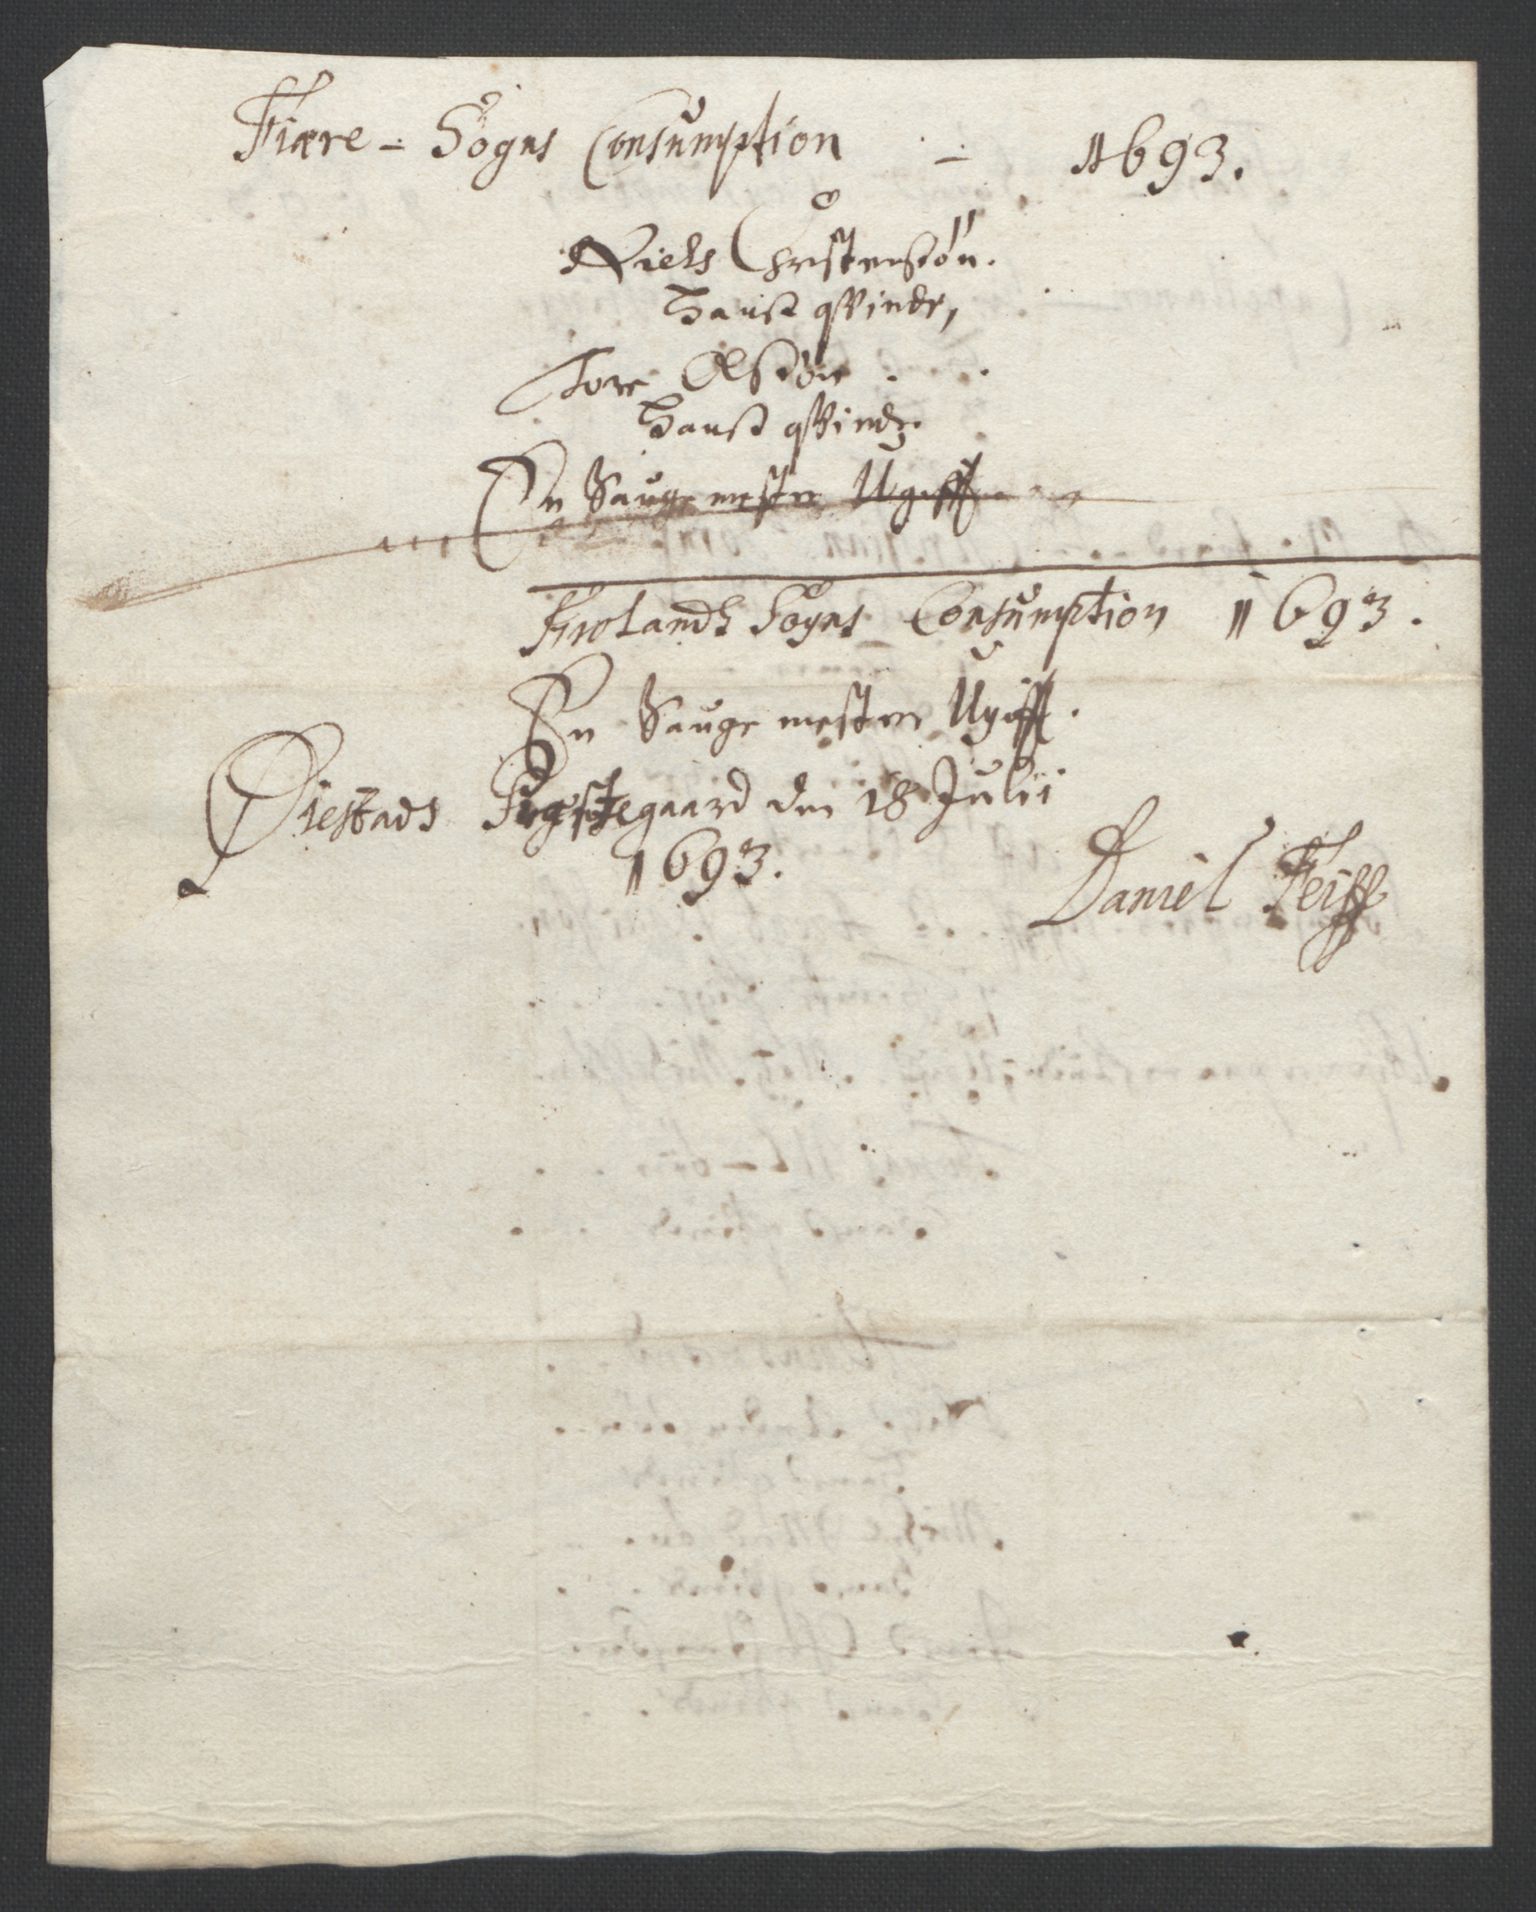 Fiære - Sogns Consumption - 1693.
Niels Christensøn.
Hanss qvinde,
Tore Olssøn.
Hanss qvinde
En Sauge mester Ugifft
Frolands Sogns Consumption 1693.
En Sauge mester Ugifft.
Øiestads Præstegaard den 18 Julii
1693.
Daniel Feiff